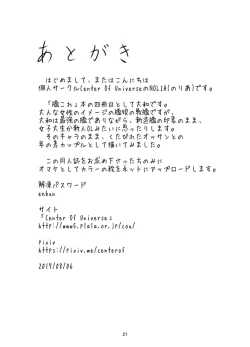 あとがき
はじめまして、またはこんにちは
個人サークルCenter Of UniverseのNOLIA(のりあ)です。
「艦これ」本の四冊目として大和です。
大人な女性のイメージの艦娘の戦艦ですが、
大和は最強の艦でありながら、新造艦の印象のまま、
女子大生か新人OLみたいに思ったりします。
そのキャラのまま、くたびれたオッサンとの
年の差カップルとして描いてみました。
この同人誌をお求め下さった方のみに
オマケとしてカラーの絵をネットにアップロードします。
解凍パスワード
enbun
サイト
「Center Of Universe」
http://www5.plala.or.jp/cou/
pixiv
https://pixiv.me/centerof
2019/08/06
21